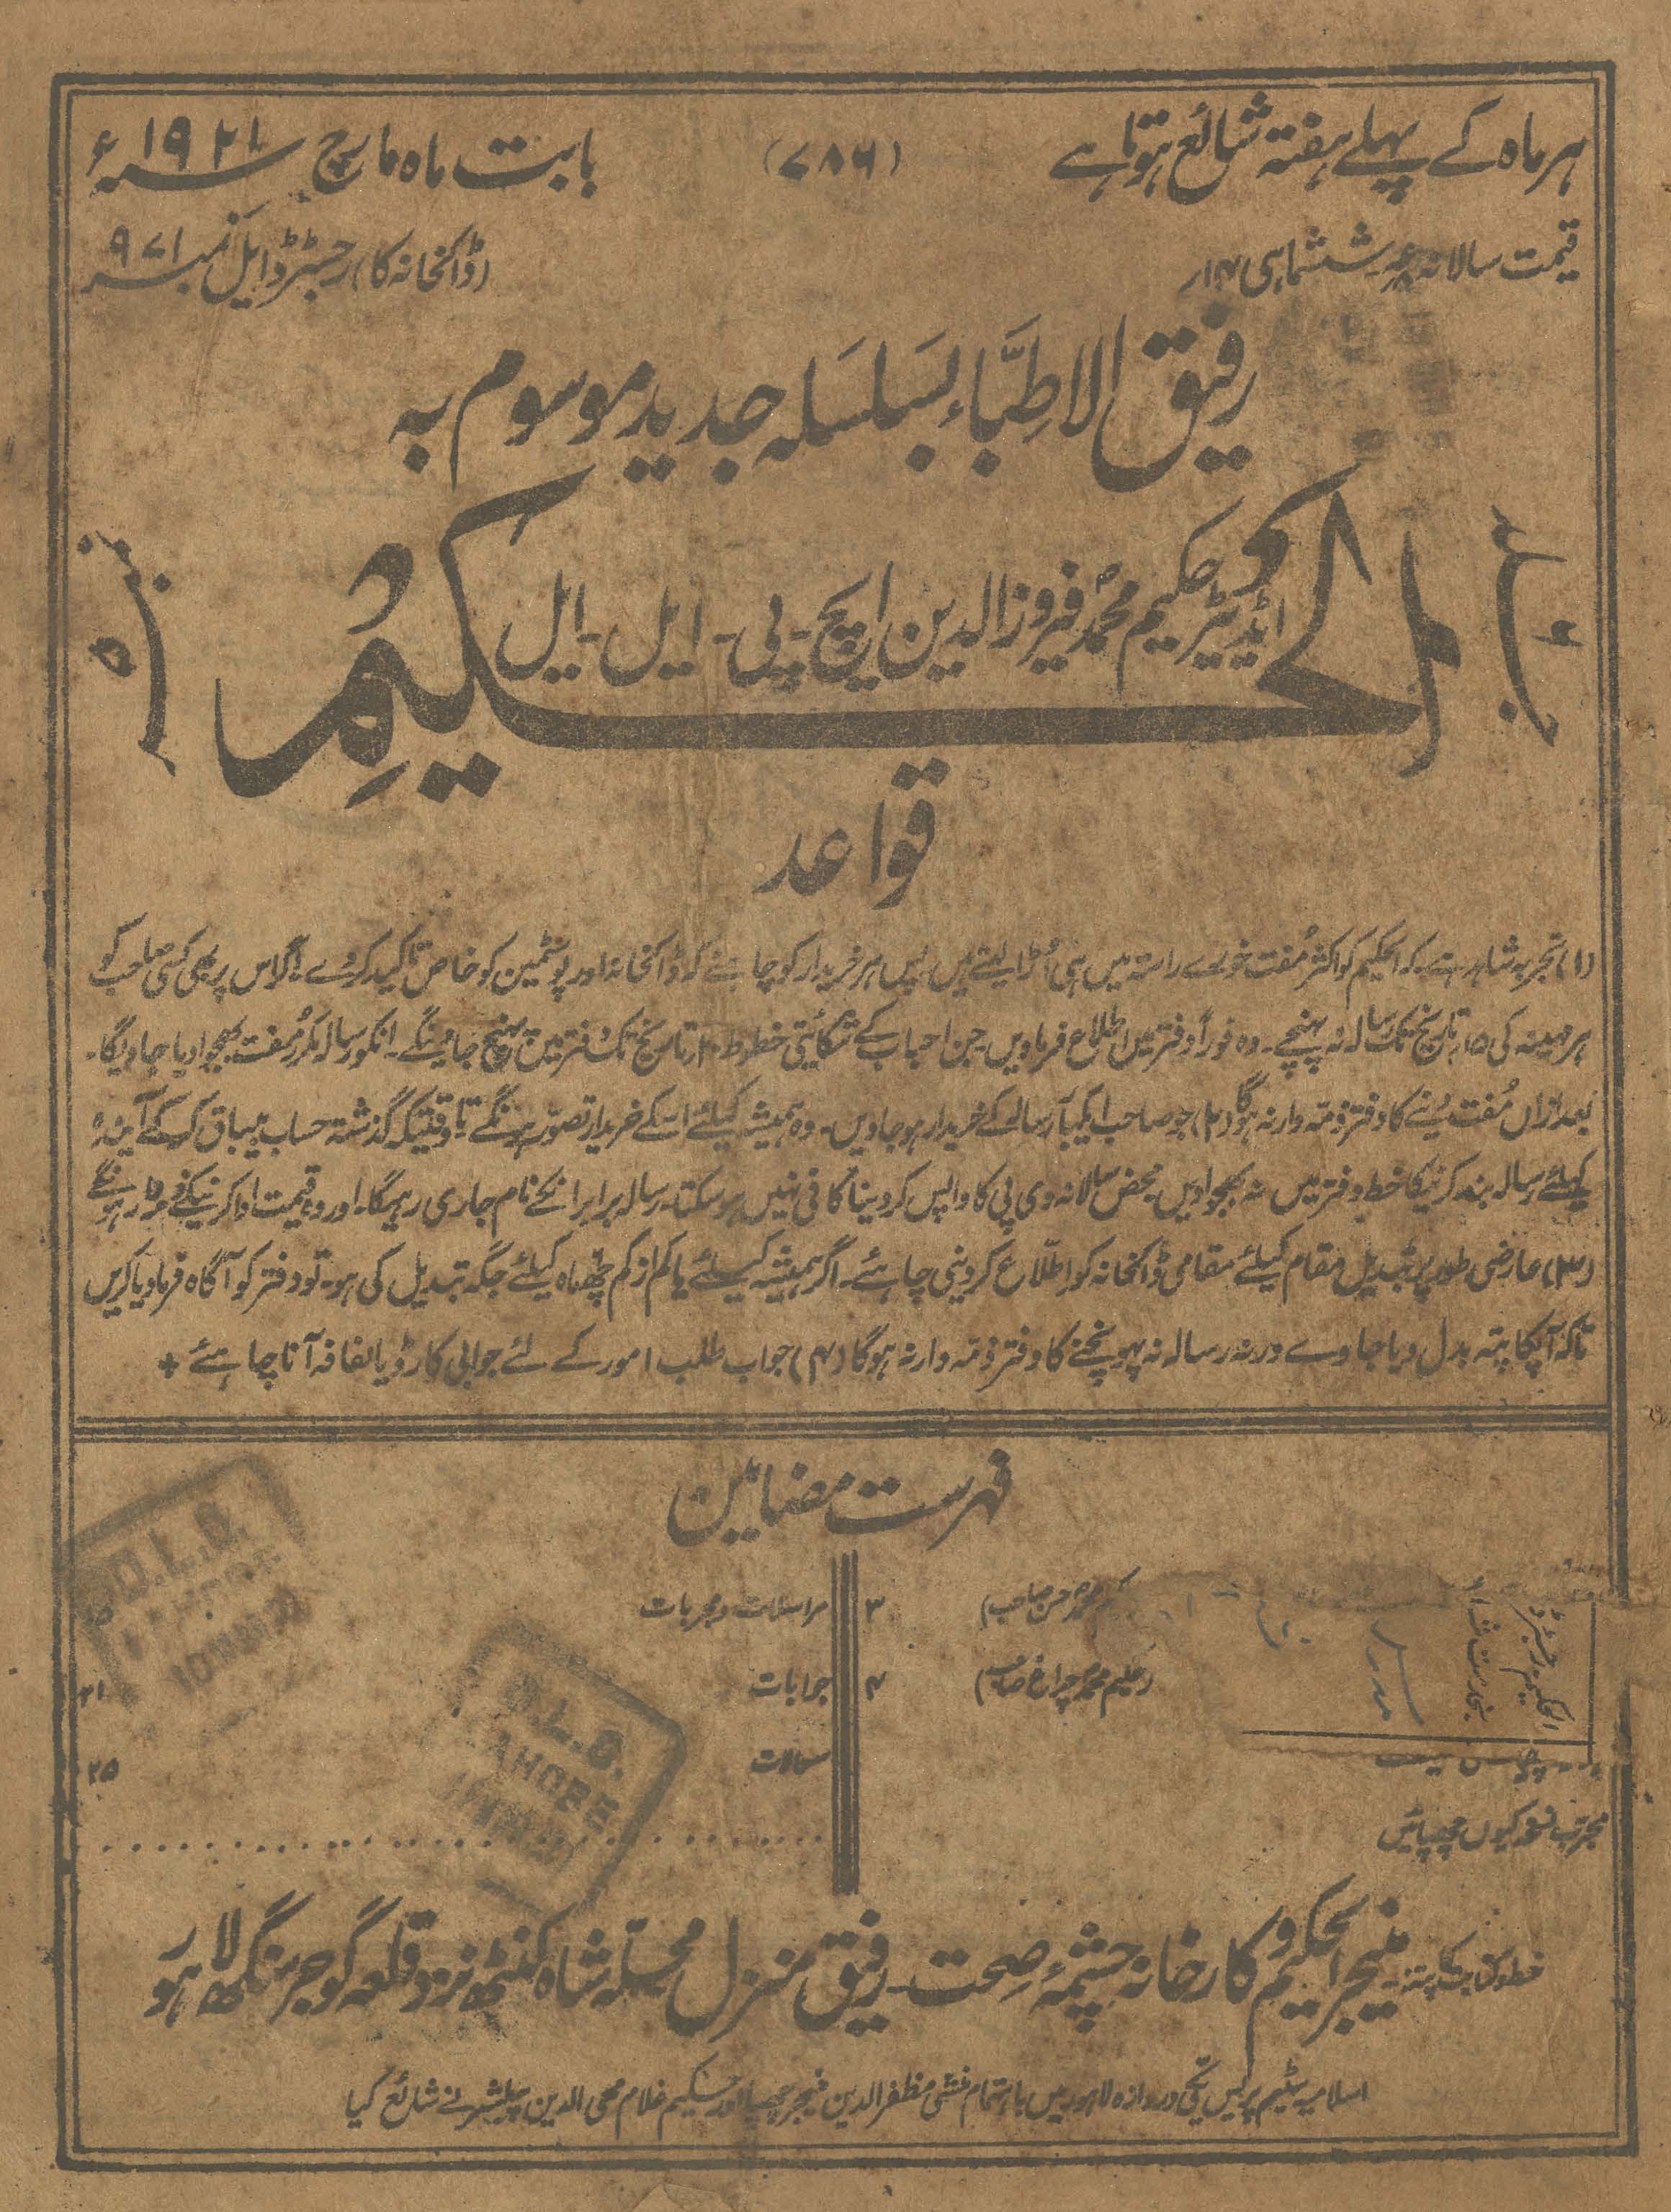 ہر ماہ کے پہلے ہفتہ شائع ہوتا ہے
(۷۸۶)
بابت ماہ مارچ سنہ ۱۹۲۱ء
قیمت سالانہ ششماہی ۱۴ر
(ڈاکخانہ کا) رجسٹرڈ ایل نمبر ۹۷۱
رفیق الاطباء بسلسلہ جدید موسوم بہ
الحکیم
ایڈیٹر حکیم محمد فیروز الدین ایچ - پی - ایل - ایل
جلد ۲
نمبر ۵
قواعد
(۱) تجربہ شاہد ہے۔ کہ الحکیم کو اکثر مُفت خورے راستہ میں ہی اُڑا لیتے ہیں۔ پس ہر خریدار کو چاہئے کہ ڈاکخانہ اور پوسٹمین کو خاص تاکید کردے۔ اگر اس پر بھی کسی صاحب کو
ہر مہینہ کی ۱۵ر تاریخ تک رسالہ نہ پہنچے۔ وہ فوراً دفتر میں اطلاع فرماویں۔ جن احباب کے شکائتی خطوط ۲۰ر تاریخ تک دفتر میں پہنچ جائینگے۔ انکو رسالہ مکرر مُفت بھجوا دیا جاویگا۔
بعد ازاں مُفت دینے کا دفتر ذمہ وار نہ ہوگا (۲) جو صاحب ایکبار رسالہ کے خریدار ہو جاویں۔ وہ ہمیشہ کیلئے اسکے خریدار تصور ہونگے تاوقتیکہ گذشتہ حساب بیباق کرکے آیندہ
کیلئے رسالہ بند کرنیکا خط دفتر میں نہ بھجوا دیں۔ محض سالانہ وی پی کا واپس کر دینا کافی نہیں ہوسکتا۔ رسالہ برابر انکے نام جاری رہیگا۔ اور وہ قیمت ادا کرنیکے ذمہ دار ہونگے
(۳) عارضی طور پر تبدیل مقام کیلئے مقامی ڈاکخانہ کو اطلاع کر دینی چاہئے۔ اگر ہمیشہ کیلئے یا کم از کم چھ ماہ کیلئے جگہ تبدیل کی ہو۔ تو دفتر کو آگاہ فرما دیا کریں
تاکہ آپکا پتہ بدل دیا جاوے ورنہ رسالہ نہ پہونچنے کا دفتر ذمہ وار نہ ہوگا (۴) جواب طلب امور کے لئے جوابی کارڈ یا لفافہ آنا چاہئے +
فہرست مضامین
محمد حسن صاحب) ۳
(حکیم محمد چراغ صاحب) ۴
مجرب نسخہ کیوں چھپائیں
مراسلات و مجربات ۱۵
جوابات ۲۱
سوالات ۲۵
D.L.O.
LAHORE
D.L.O.
LAHORE
خط و کتابت کا پتہ:۔ منیجر الحکیم و کارخانہ چشمۂ صحت۔ رفیق منزل محلہ شاہ کنٹھ نزد قلعہ گوجر سنگھ لاہور
اسلامیہ سٹیم پریس یکی دروازہ لاہور میں باہتمام منشی مظفر الدین منیجر چھپا اور حکیم غلام محی الدین پبلشر نے شائع کیا